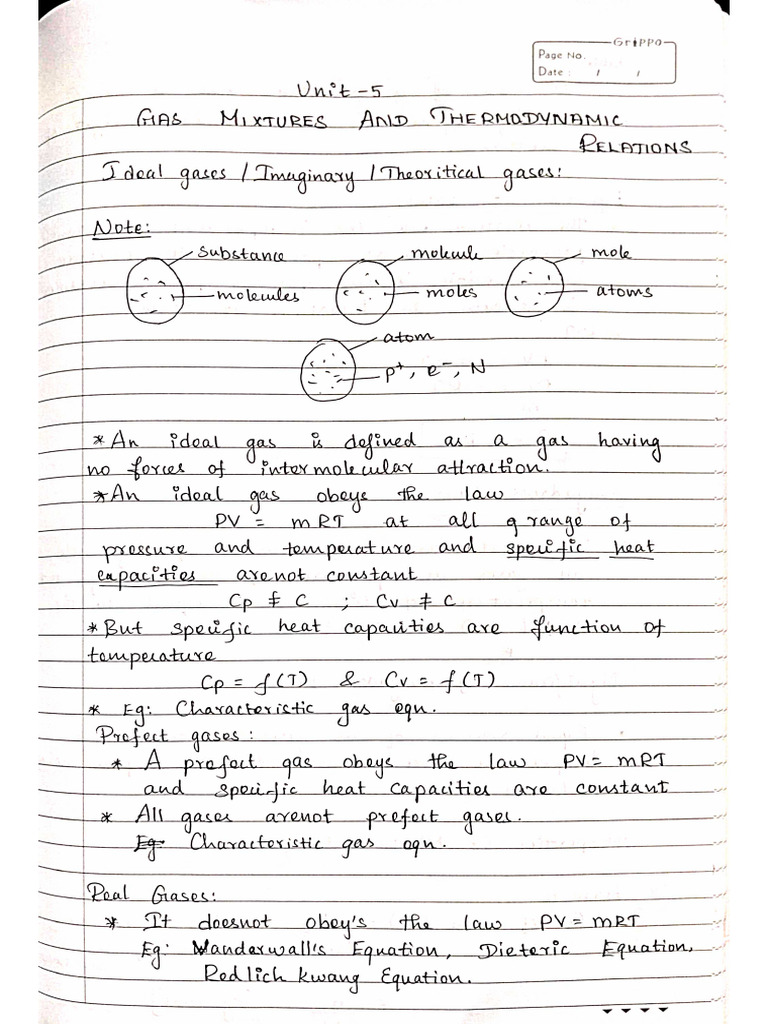 Grippo
Page No.
Date : / /
Unit - 5
GAS MIXTURES AND THERMODYNAMIC
RELATIONS
Ideal gases / Imaginary / Theoritical gases:
Note:
substance molecule mole
molecules moles atoms
atom
p⁺, e⁻, N
* An ideal gas is defined as a gas having
no forces of intermolecular attraction.
* An ideal gas obeys the law
PV = mRT at all range of
pressure and temperature and specific heat
capacities arenot constant
Cp ≠ C ; Cv ≠ C
* But specific heat capacities are function of
temperature
Cp = f(T) & Cv = f(T)
* Eg: Characteristic gas eqn.
Prefect gases:
* A prefect gas obeys the law PV = mRT
and specific heat capacities are constant
* All gases arenot prefect gases.
Eg- Characteristic gas eqn.
Real Gases:
* It doesnot obey's the law PV = mRT
Eg: Vanderwall's Equation, Dieteric Equation,
Redlich Kwang Equation.